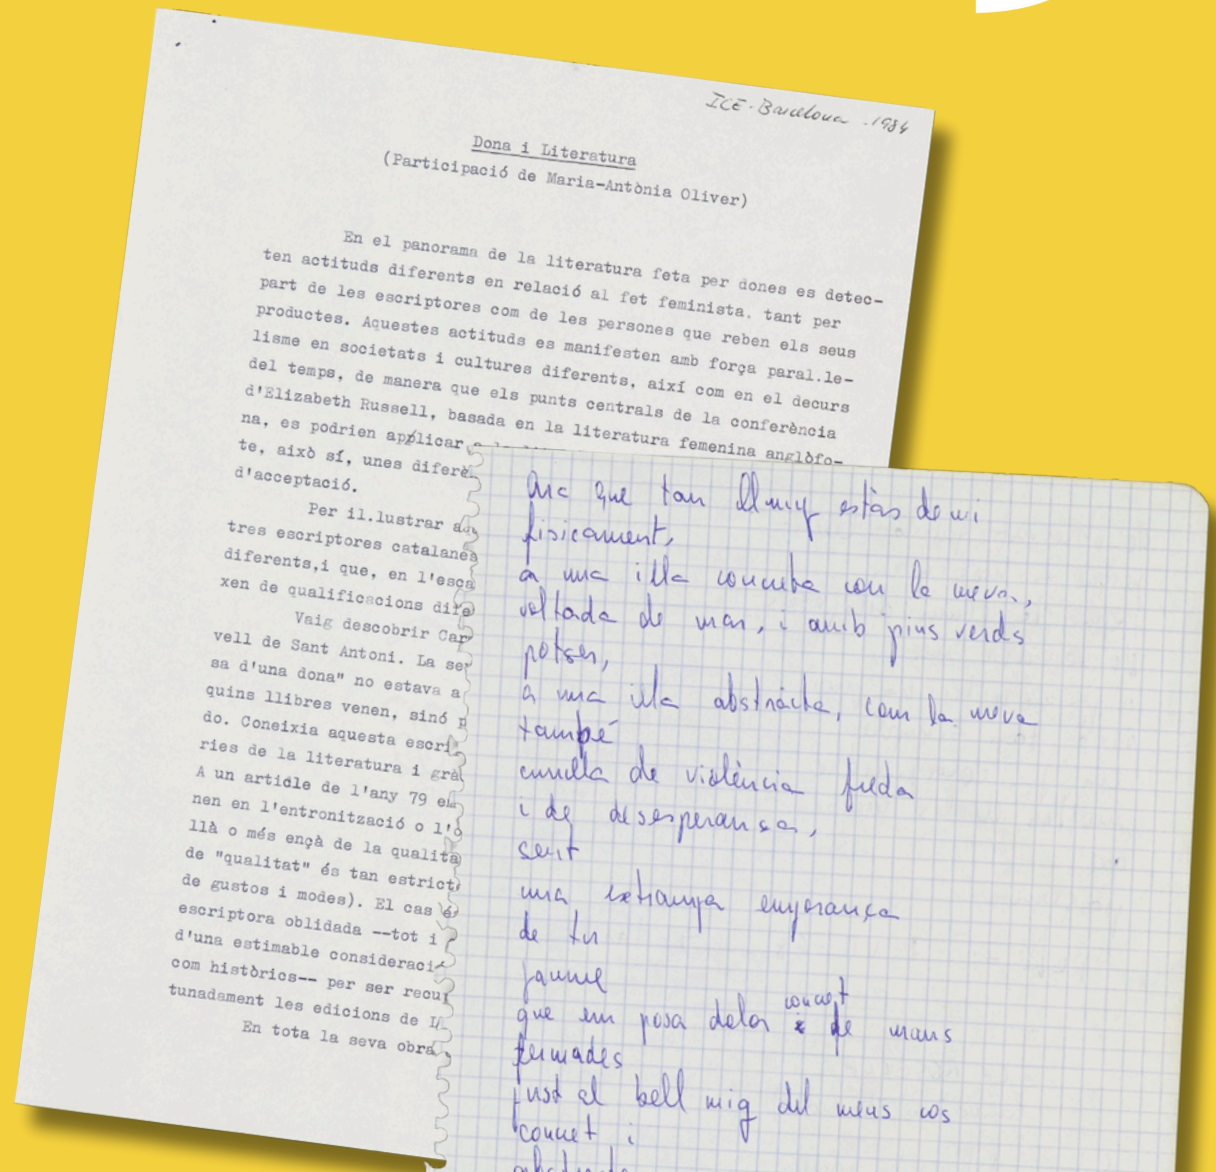 ICE - Barcelona - 1984
Dona i Literatura
(Participació de Maria-Antònia Oliver)
En el panorama de la literatura feta per dones es detec-
ten actituds diferents en relació al fet feminista. tant per
part de les escriptores com de les persones que reben els seus
productes. Aquestes actituds es manifesten amb força paral.le-
lisme en societats i cultures diferents, així com en el decurs
del temps, de manera que els punts centrals de la conferència
d'Elizabeth Russell, basada en la literatura femenina anglòfo-
na, es podrien applicar a
te, això sí, unes diferè
d'acceptació.
Per il.lustrar aq
tres escriptores catalanes
diferents,i que, en l'esca
xen de qualificacions dife
Vaig descobrir Car
vell de Sant Antoni. La se
sa d'una dona" no estava a
quins llibres venen, sinó p
do. Coneixia aquesta escri
ries de la literatura i grà
A un article de l'any 79 el
nen en l'entronització o l'o
llà o més ençà de la qualita
de "qualitat" és tan estrict
de gustos i modes). El cas é
escriptora oblidada --tot i
d'una estimable consideraci
com històrics-- per ser recu
tunadament les edicions de
En tota la seva obra
Ara que tan lluny estàs de mi
físicament,
a una illa concreta com la meva,
voltada de mar, i amb pins verds
potser,
a una illa abstracta, com la meva
també
curulla de violència freda
i de desesperansa,
sent
una extranya enyorança
de tu
jaume
concret
que em posa dolor de mans
fermades
just al bell mig del meus cos
concret i
abstracte